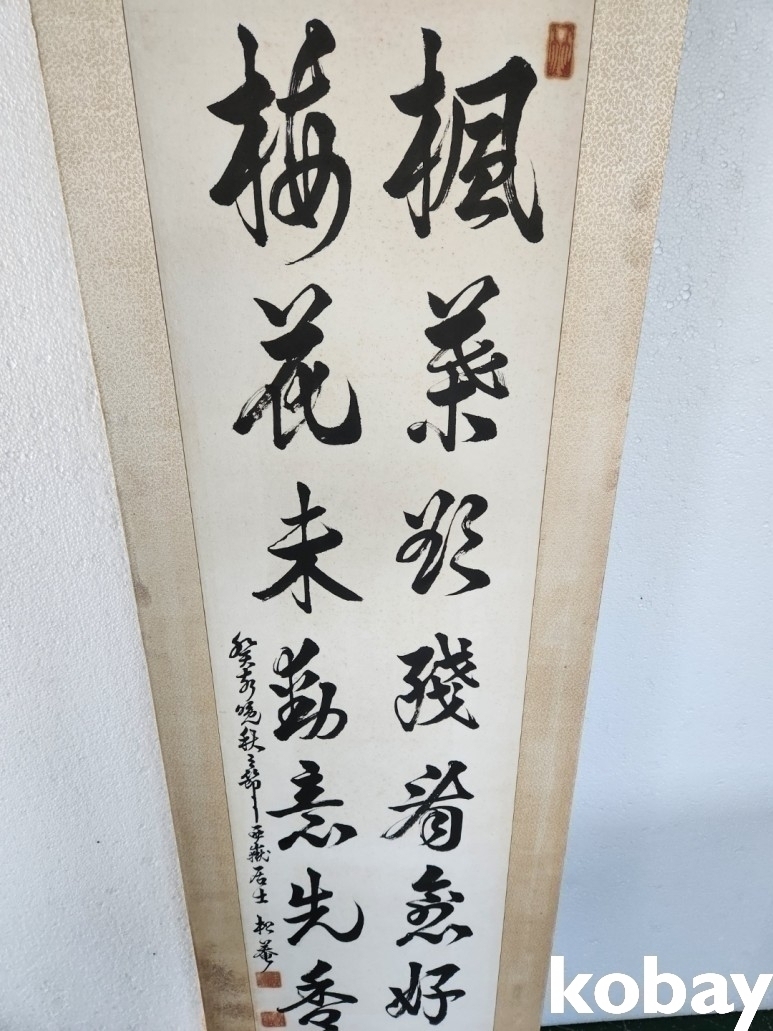 楓葉欲殘看愈好
梅花未動意先香
癸亥晚秋之節 西嶽居士 松菴
kobay